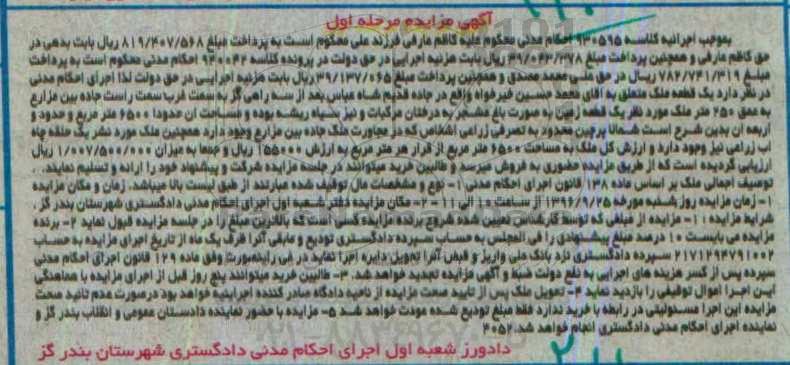 آگهی مزایده مرحله اول
بموجب اجرائیه کلاسه ۹۳۰۵۹۵ احکام مدنی محکوم علیه کاظم عارفی فرزند علی محکوم است به پرداخت مبلغ ۸۱۹/۴۰۷/۵۶۸ ریال بابت بدهی در
حق کاظم عارفی و همچنین پرداخت مبلغ ۳۹/۰۴۳/۳۷۸ ریال بابت هزینه اجرایی در حق دولت در پرونده کلاسه ۹۳۰۰۴۲ احکام مدنی محکوم است به پرداخت
مبلغ ۷۸۲/۷۴۱/۳۱۹ ریال در حق علی محمد مصدق و همچنین پرداخت مبلغ ۳۹/۱۳۷/۰۶۵ ریال بابت هزینه اجرایی در حق دولت لذا اجرای احکام مدنی
در نظر دارد یک قطعه ملک متعلق به آقای محمد حسین خیرخواه واقع در جاده قدیم شاه عباس بعد از سه راهی گز به سمت غرب سمت راست جاده بین مزارع
به عمق ۲۵۰ متر ملک مورد نظر یک قطعه زمین به صورت باغ مشجر به درختان مرکبات و نیز سیاه ریشه بوده و مساحت آن حدودا ۶۵۰۰ متر مربع و حدود و
اربعه آن بدین شرح است شمالا پرچین محدود به تصرفی زراعی اشخاص که در مجاورت ملک جاده بین مزارع وجود دارد همچنین ملک مورد نظر یک حلقه چاه
آب زراعی نیز وجود دارد و ارزش کل ملک به مساحت ۶۵۰۰ متر مربع از قرار هر متر مربع به ارزش ۱۵۵۰۰۰ ریال و جمعا به میزان ۱/۰۰۷/۵۰۰/۰۰۰ ریال
ارزیابی گردیده است که از طریق مزایده حضوری به فروش میرسد و طالبین خرید میتوانند در جلسه مزایده شرکت و پیشنهاد خود را ارائه و تسلیم نمایند.
توصیف اجمالی ملک بر اساس ماده ۱۳۸ قانون اجرای احکام مدنی ۱- نوع و مشخصات مال توقیف شده عبارتند از طبق لیست بالا میباشد. زمان و مکان مزایده
۱- زمان مزایده روز شنبه مورخه ۱۳۹۶/۹/۲۵ از ساعت ۱۰ الی ۱۱ ۲- مکان مزایده دفتر شعبه اول اجرای احکام مدنی دادگستری شهرستان بندر گز.
شرایط مزایده ۱- مزایده از مبلغی که توسط کارشناس تعیین شده شروع برنده مزایده کسی است که بالاترین مبلغ را در جلسه مزایده قبول نماید ۲- برنده
مزایده می بایست ۱۰ درصد مبلغ پیشنهادی را فی المجلس به حساب سپرده دادگستری تودیع و مابقی آنرا ظرف یک ماه از تاریخ اجرای مزایده به حساب
۲۱۷۱۲۹۴۷۹۱۰۰۲ سپرده دادگستری نزد بانک ملی واریز و قبض آنرا تحویل دایره اجرا نماید در غیر اینصورت وفق ماده ۱۲۹ قانون اجرای احکام مدنی
سپرده پس از کسر هزینه های اجرایی به نفع دولت ضبط و آگهی مزایده تجدید خواهد شد. ۳- طالبین خرید میتوانند پنج روز قبل از اجرای مزایده با هماهنگی
این اجرا اموال توقیفی را بازدید نماید ۴- تحویل ملک پس از تایید صحت مزایده از ناحیه دادگاه صادر کننده اجرائیه خواهد بود درصورت عدم تائید صحت
مزایده این اجرا مسئولیتی در رابطه با خرید ندارد فقط مبلغ تودیع شده عودت خواهد شد ۵- مزایده با حضور نماینده دادستان عمومی و انقلاب بندر گز و
نماینده اجرای احکام مدنی دادگستری انجام خواهد شد. ۴۰۵۲
دادورز شعبه اول اجرای احکام مدنی دادگستری شهرستان بندر گز